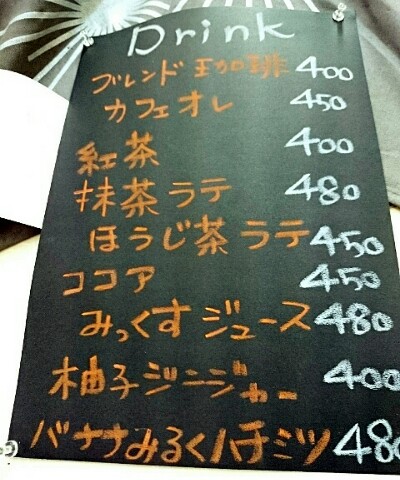 Drink
ブレンド珈琲 400
カフェオレ 450
紅茶 400
抹茶ラテ 480
ほうじ茶ラテ 450
ココア 450
みっくすジュース 480
柚子ジンジャー 400
バナナみるくハチミツ 480